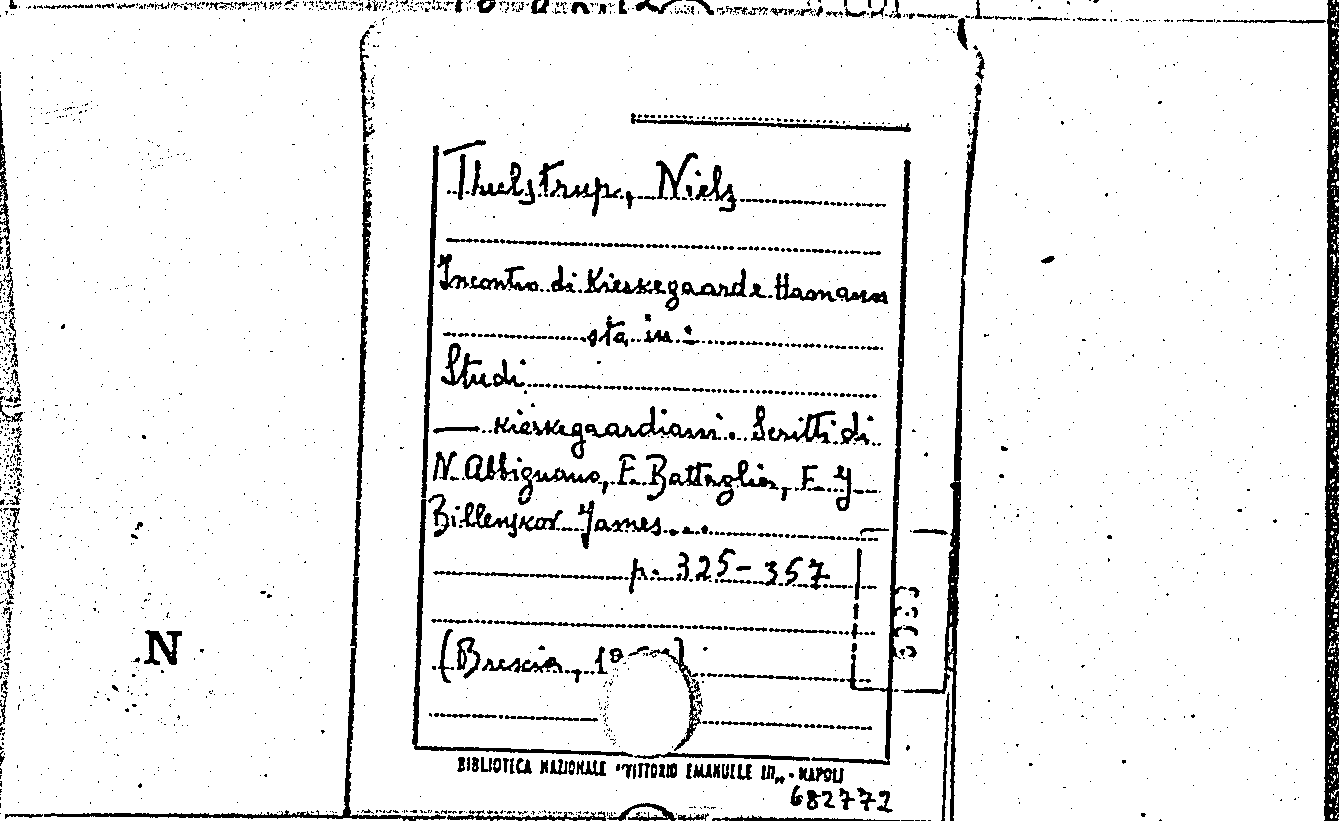 Thulstrup, Niels
Incontro di Kierkegaard e Hamann
sta in:
Studi
— Kierkegaardiani. Scritti di
N. Abbignano, F. Battaglia, F. J
Billenskov James...
p. 325-357
(Brescia,
N
BIBLIOTECA NAZIONALE "VITTORIO EMANUELE III„ - NAPOLI
682772